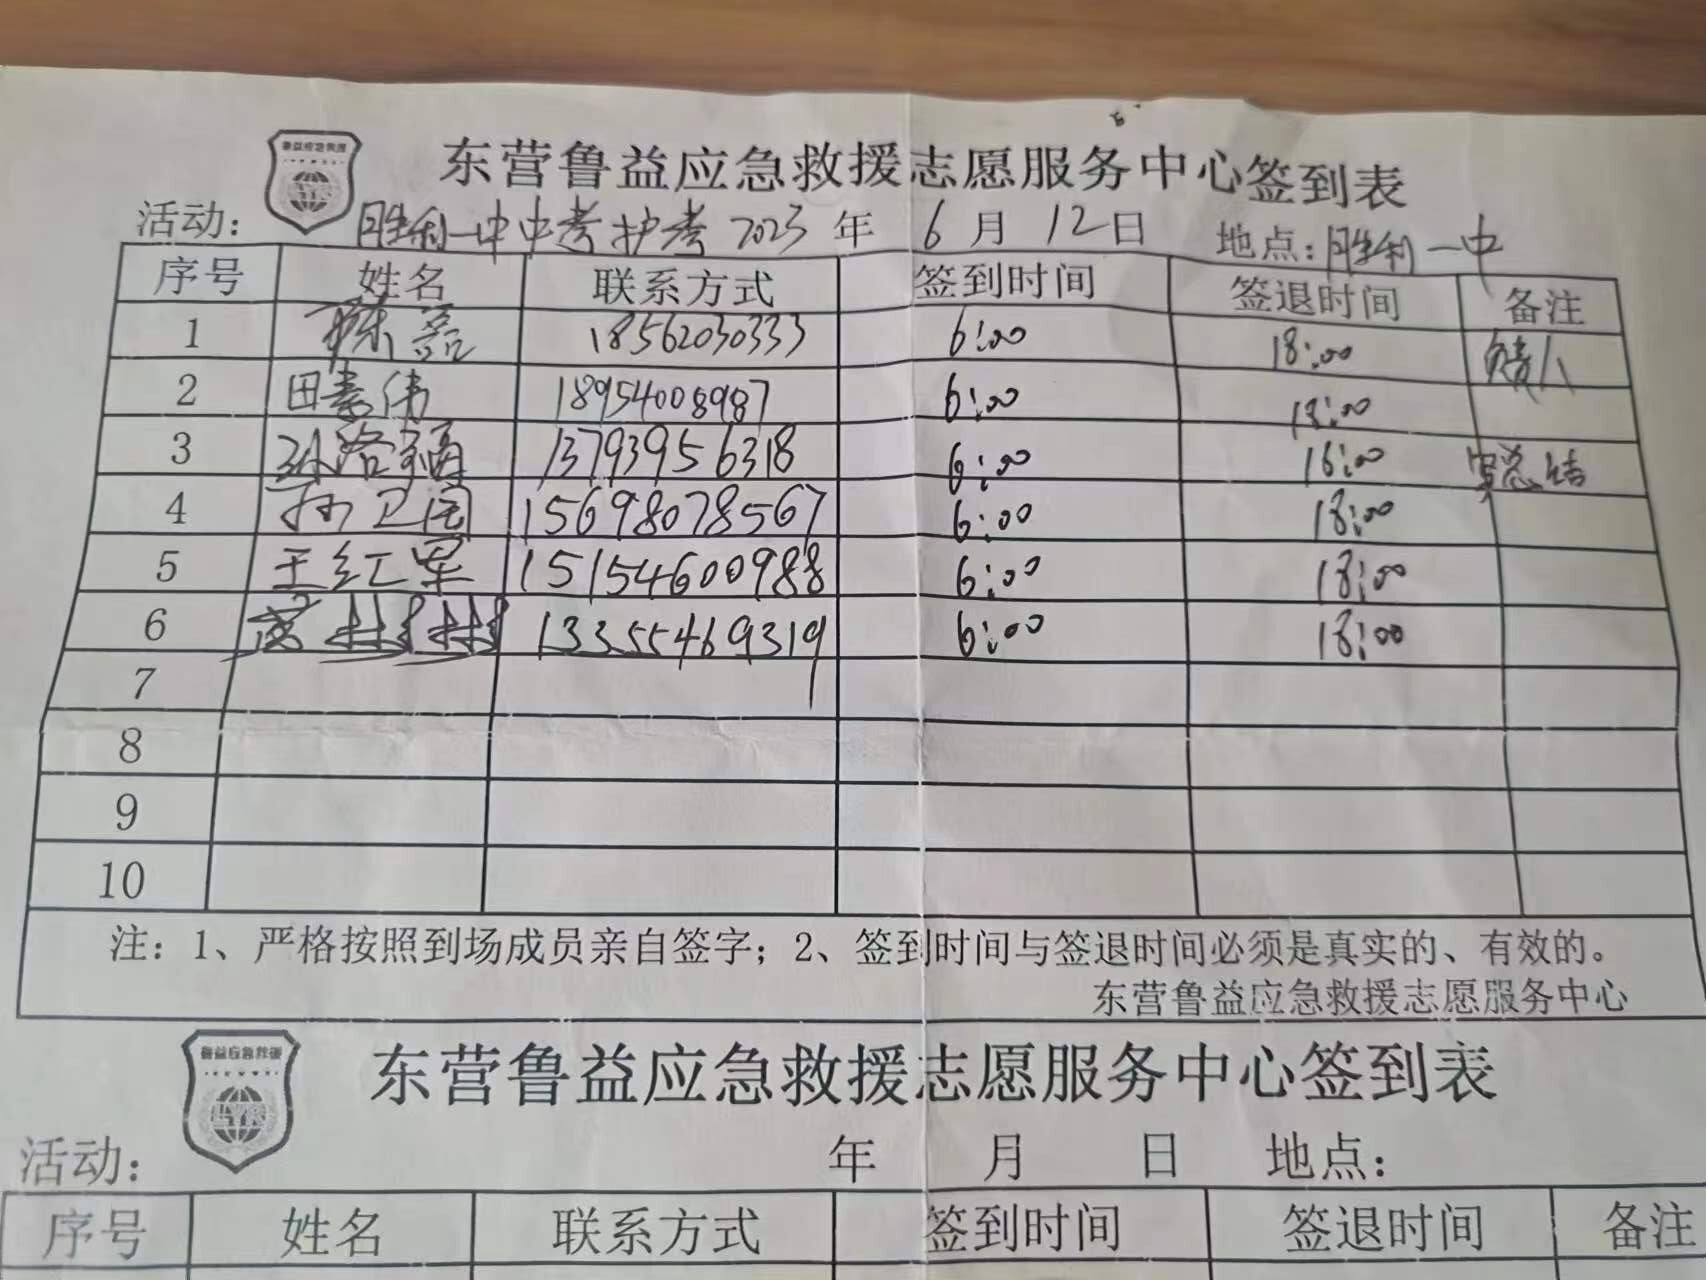 鲁益应急救援
东营鲁益应急救援志愿服务中心签到表
活动：胜利一中中考护考 2023年6月12日 地点：胜利一中
序号 姓名 联系方式 签到时间 签退时间 备注
1 陈磊 18562030333 6:00 18:00 负责人
2 田素伟 18954008987 6:00 18:00
3 孙洛 13793956318 6:00 18:00 写总结
4 孙卫国 15698078567 6:00 18:00
5 王红军 15154600988 6:00 18:00
6 林林 13355469319 6:00 18:00
7
8
9
10
注：1、严格按照到场成员亲自签字；2、签到时间与签退时间必须是真实的、有效的。
东营鲁益应急救援志愿服务中心
鲁益应急救援
LYR
东营鲁益应急救援志愿服务中心签到表
活动： 年 月 日 地点：
序号 姓名 联系方式 签到时间 签退时间 备注